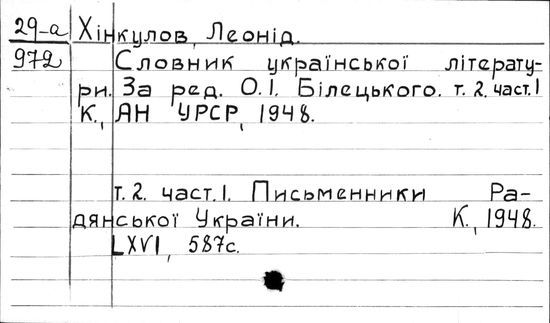 29-а Хінкулов, Леонід.
972 Словник української літерату-
ри. За ред. О.І. Білецького. т. 2. част.1
К., АН УРСР, 1948.
т. 2. част. 1. Письменники Ра-
дянської України. К., 1948.
LXVI, 587с.